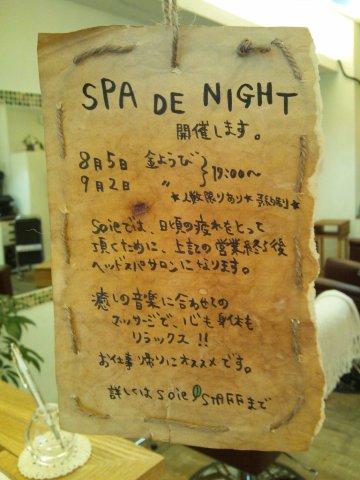 SPA DE NIGHT
開催します。
8月5日 金ようび
9月2日 〃 } 19:00〜
★人数限りあり★ 予約制★
Soieでは、日頃の疲れをとって
頂くために、上記の営業終了後
ヘッドスパサロンになります。
癒しの音楽に合わせての
マッサージで、心も身体も
リラックス!!
お仕事帰りにオススメです。
詳しくは soie STAFFまで